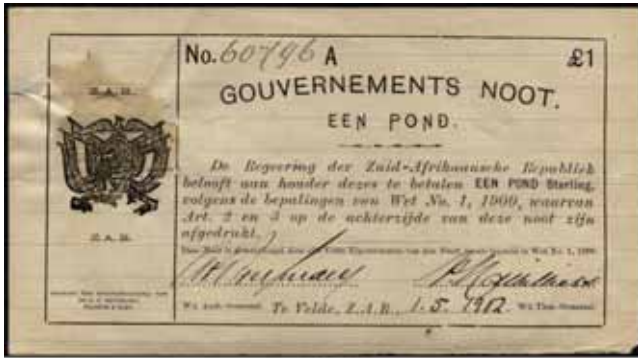 No. 60796 A £1
GOUVERNEMENTS NOOT.
EEN POND.
Z.A.R.
De Regeering der Zuid-Afrikaansche Republiek
belooft aan houder dezes te betalen EEN POND Sterling,
volgens de bepalingen van Wet No. 1, 1900, waarvan
Art. 2 en 3 op de achterzijde van deze noot zijn
afgedrukt.
Z.A.R.
Te Velde, Z.A.R., 1.5.1902